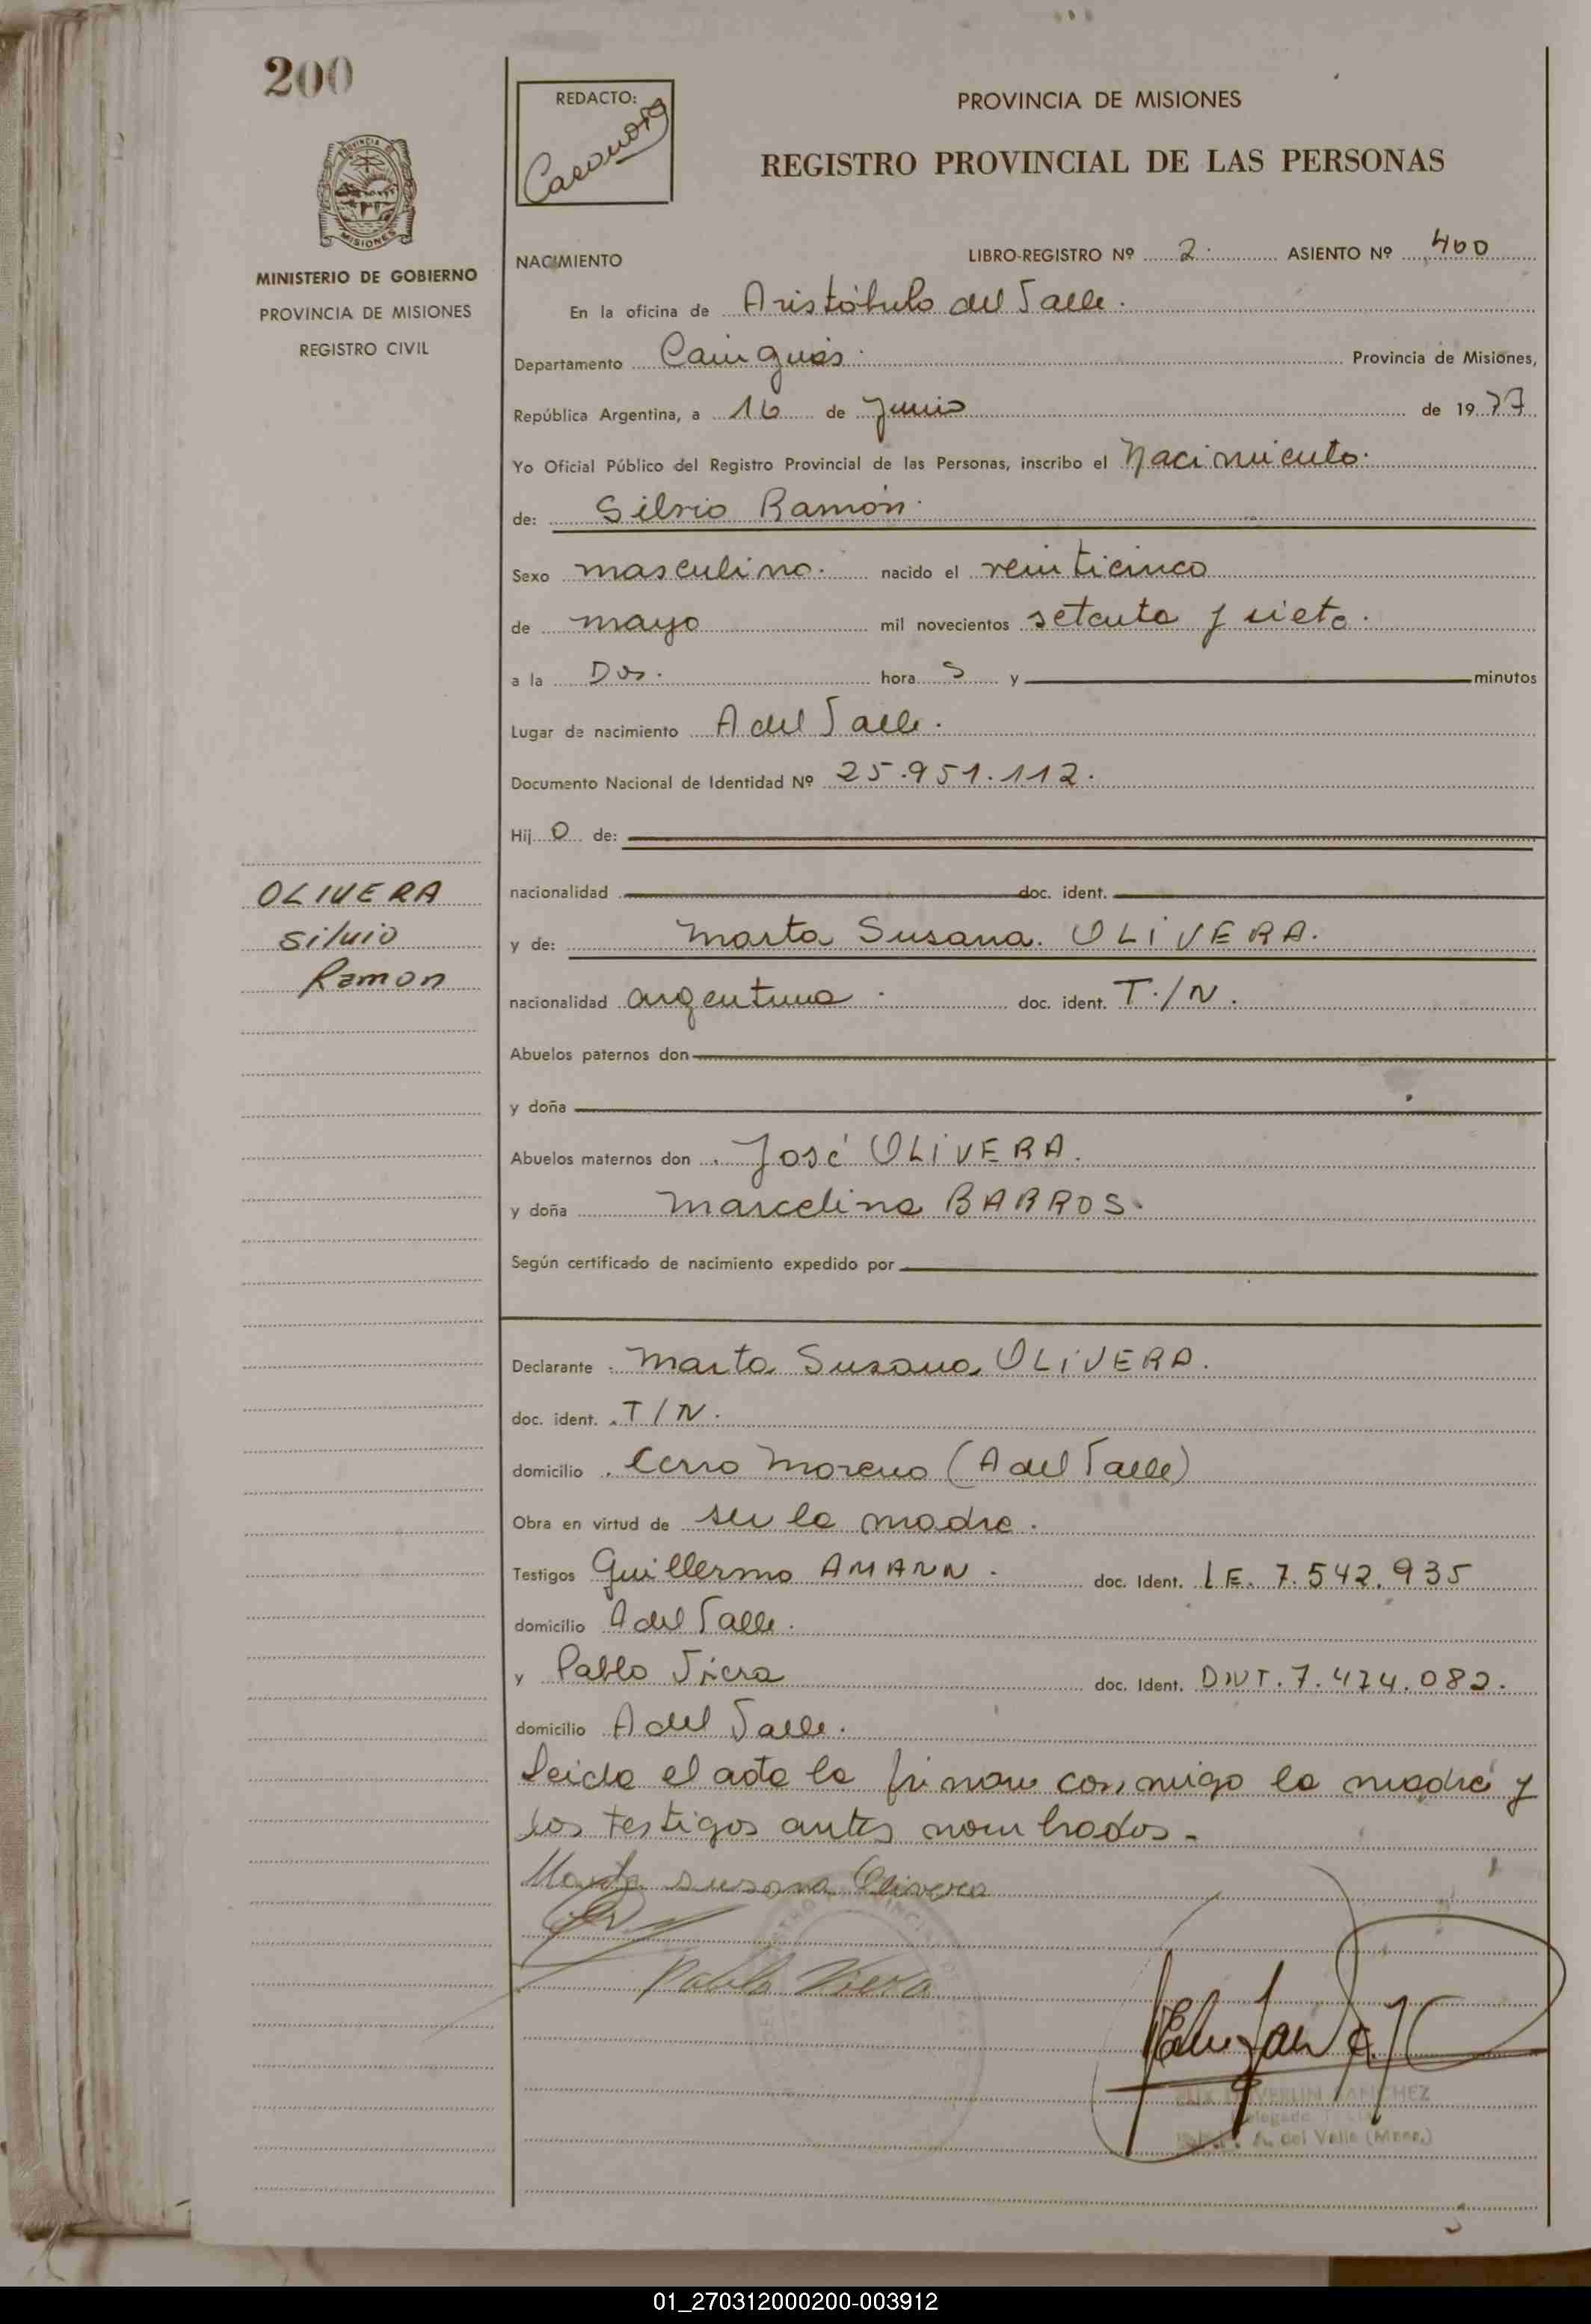 200
REDACTO:
PROVINCIA DE MISIONES
REGISTRO PROVINCIAL DE LAS PERSONAS
PROVINCIA DE
MISIONES
MINISTERIO DE GOBIERNO
PROVINCIA DE MISIONES
REGISTRO CIVIL
NACIMIENTO LIBRO-REGISTRO Nº 2. ASIENTO Nº 400
En la oficina de Aristóbulo del Valle.
Departamento Cainguás. Provincia de Misiones,
República Argentina, a 16 de Junio de 1977
Yo Oficial Público del Registro Provincial de las Personas, inscribo el Nacimiento.
de: Silvio Ramón.
Sexo masculino. nacido el veinticinco
de mayo mil novecientos setenta y siete.
a la Dos. hora s y minutos
Lugar de nacimiento A del Valle.
Documento Nacional de Identidad Nº 25.951.112.
Hij o de:
OLIVERA
Silvio
Ramon
nacionalidad doc. ident.
y de: Marta Susana. OLIVERA.
nacionalidad argentina. doc. ident. T./N.
Abuelos paternos don
y doña
Abuelos maternos don José OLIVERA.
y doña Marcelina BARROS.
Según certificado de nacimiento expedido por
Declarante Marta Susana OLIVERA.
doc. ident. T/N.
domicilio Cerro Moreno (A del Valle)
Obra en virtud de ser la madre.
Testigos Guillermo AMANN. doc. Ident. L.E. 7.542.935
domicilio A del Valle.
y Pablo Viera doc. Ident. DNI. 7.474.082.
domicilio A del Valle.
Leida el acta la firman conmigo la madre y
los testigos antes nombrados.-
Marta Susana Olivera
Pablo Viera
SANCHEZ
Delegado
A. del Valle (Mnes.)
01_270312000200-003912